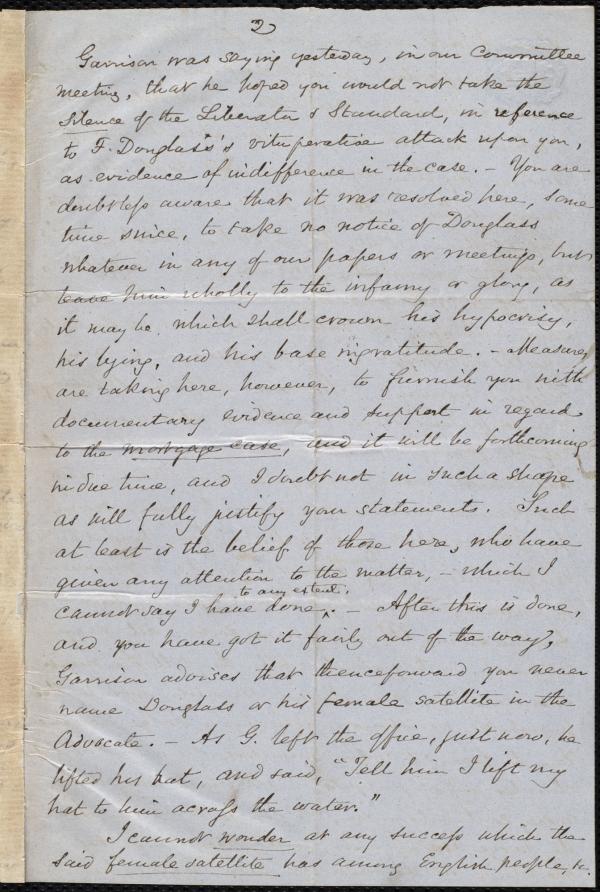 2
Garrison was saying yesterday, in our Committee
meeting, that he hoped you would not take the
silence of the Liberator & Standard, in reference
to F. Douglass's vituperative attack upon you,
as evidence of indifference in the case. – You are
doubtless aware that it was resolved here, some
time since, to take no notice of Douglass
whatever in any of our papers or meetings, but
leave him wholly to the infamy or glory, as
it may be, which shall crown his hypocrisy,
his lying, and his base ingratitude. – Measures
are taking here, however, to furnish you with
documentary evidence and support in regard
to the mortgage case, and it will be forthcoming
in due time, and I doubt not in such a shape
as will fully justify your statements. Such
at least is the belief of those here, who have
given any attention to the matter, – which I
cannot say I have done to any extent. – After this is done,
and you have got it fairly out of the way,
Garrison advises that thenceforward you never
name Douglass or his female satellite in the
Advocate. – As G. left the office, just now, he
lifted his hat, and said, "Tell him I lift my
hat to him across the water."
I cannot wonder at any success which the
said female satellite has among English people, &c.